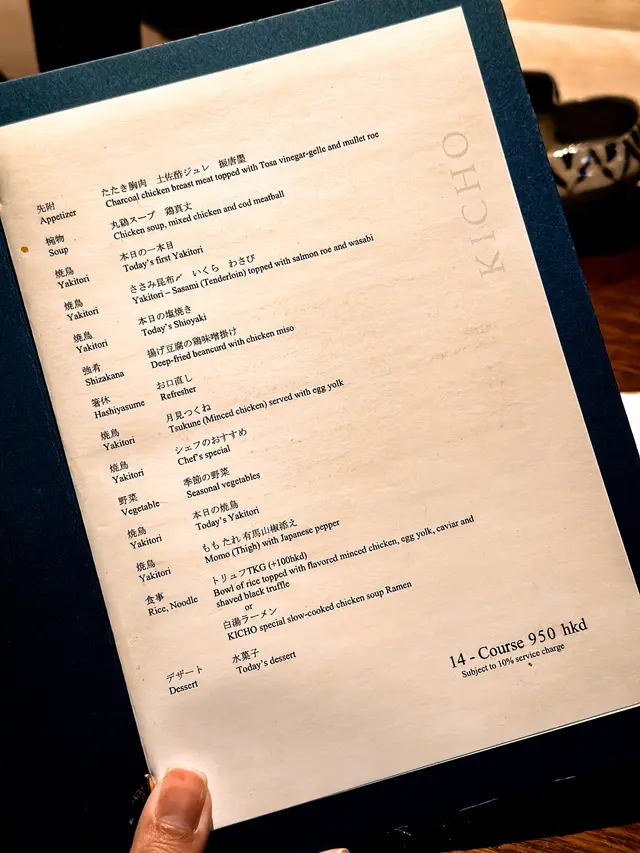 KICHO
先附 たたき胸肉 土佐酢ジュレ 振唐墨
Appetizer Charcoal chicken breast meat topped with Tosa vinegar-gelle and mullet roe
椀物 丸鶏スープ 鶏真丈
Soup Chicken soup, mixed chicken and cod meatball
焼鳥 本日の一本目
Yakitori Today's first Yakitori
焼鳥 ささみ昆布〆 いくら わさび
Yakitori Yakitori – Sasami (Tenderloin) topped with salmon roe and wasabi
焼鳥 本日の塩焼き
Yakitori Today's Shioyaki
強肴 揚げ豆腐の鶏味噌掛け
Shizakana Deep-fried beancurd with chicken miso
箸休 お口直し
Hashiyasume Refresher
焼鳥 月見つくね
Yakitori Tsukune (Minced chicken) served with egg yolk
焼鳥 シェフのおすすめ
Yakitori Chef's special
野菜 季節の野菜
Vegetable Seasonal vegetables
焼鳥 本日の焼鳥
Yakitori Today's Yakitori
焼鳥 もも たれ 有馬山椒添え
Yakitori Momo (Thigh) with Japanese pepper
食事 トリュフTKG (+100hkd)
Rice, Noodle Bowl of rice topped with flavored minced chicken, egg yolk, caviar and
shaved black truffle
or
白湯ラーメン
KICHO special slow-cooked chicken soup Ramen
デザート 水菓子
Dessert Today's dessert
14 - Course 950 hkd
Subject to 10% service charge